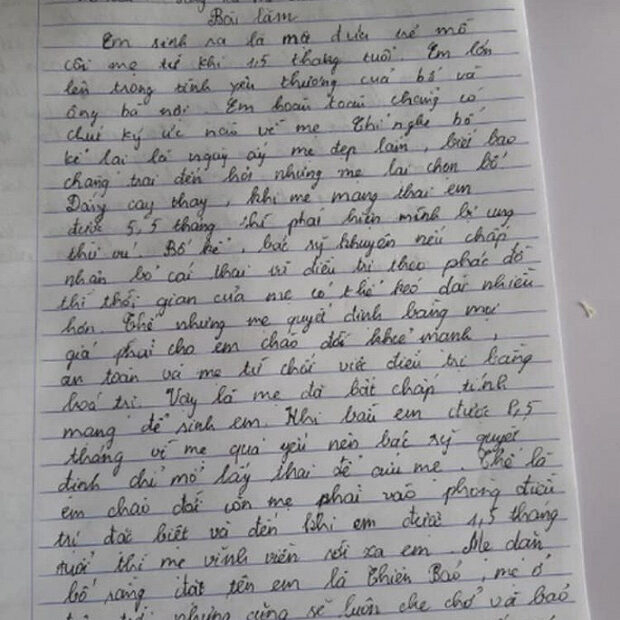 Bài làm
Em sinh ra là một đứa trẻ mồ
côi mẹ từ khi 1,5 tháng tuổi. Em lớn
lên trong tình yêu thương của bố và
ông bà nội. Em hoàn toàn chẳng có
chút ký ức nào về mẹ. Chỉ nghe bố
kể lại là ngày ấy mẹ đẹp lắm, biết bao
chàng trai đến hỏi nhưng mẹ lại chọn bố
Đắng cay thay, khi mẹ mang thai em
được 5,5 tháng thì phát hiện mình bị ung
thư vú. Bố kể, bác sỹ khuyên nếu chấp
nhận bỏ cái thai và điều trị theo phác đồ
thì thời gian của mẹ có thể kéo dài nhiều
hơn. Thế nhưng mẹ quyết định bằng mọi
giá phải cho em chào đời khoẻ mạnh,
an toàn và mẹ từ chối việc điều trị bằng
hoá trị. Vậy là mẹ đã bất chấp tính
mạng để sinh em. Khi bầu em được 8,5
tháng vì mẹ quá yếu nên bác sỹ quyết
định chỉ mổ lấy thai để cứu mẹ. Thế là
em chào đời còn mẹ phải vào phòng điều
trị đặc biệt và đến khi em được 1,5 tháng
tuổi thì mẹ vĩnh viễn rời xa em. Mẹ dặn
bố rằng đặt tên em là Thiên Bảo, mẹ ở
trời nhưng cũng sẽ luôn che chở và bảo